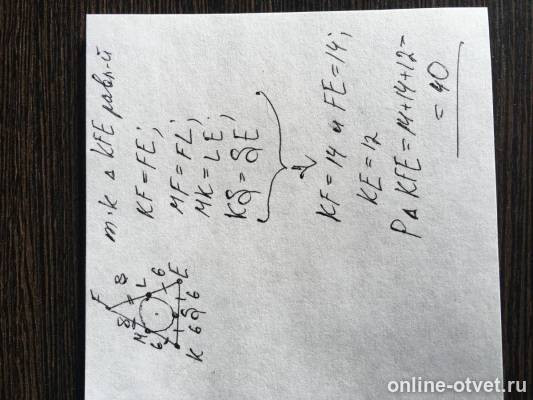 т.к Δ KFE равн-й
KF = FE;
MF = FL;
MK = LE;
KS = SE;
KF = 14 и FE = 14;
KE = 12
P Δ KFE = 14+14+12=
= 40
F
8 8
M L
6 6
K 6 S 6 E
online-otvet.ru